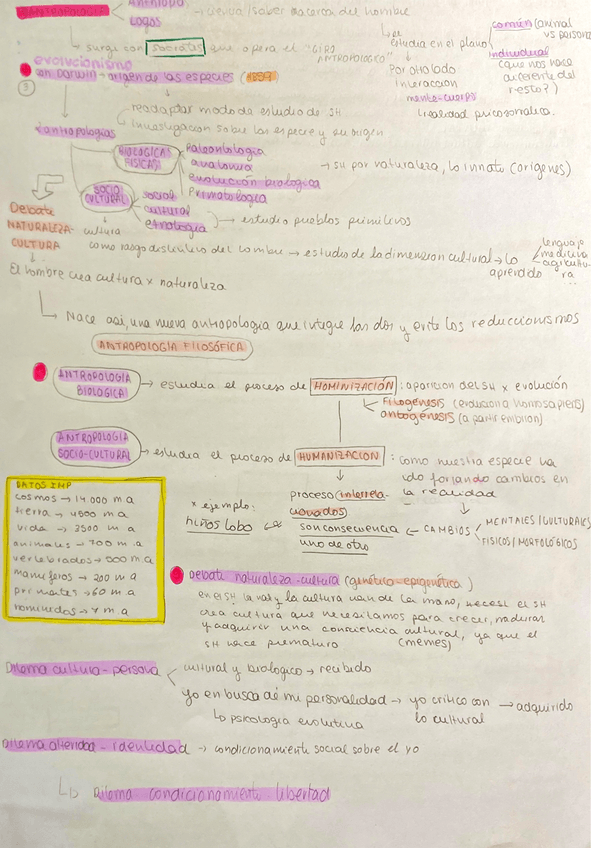 ANTROPOLOGÍA
Logos
ciencia/saber acerca del hombre
surge con Sócrates que opera el "GIRO ANTROPOLÓGICO"
se estudia en el plano
común (animal vs persona
individual (que nos hace diferente del resto?)
Por otro lado interacción mente-cuerpo
(realidad psicosomática.
evolucionismo
con Darwin → origen de las especies (1859)
readaptar modo de estudio de SH
investigación sobre las especies y su origen
antropologías
BIOLÓGICAS FÍSICAS
Paleontología
anatomía
evolución biológica
Primatología
→ SH por naturaleza, lo innato (orígenes)
SOCIO CULTURAL
social
cultural
etnología
→ estudio pueblos primitivos
Debate
NATURALEZA-CULTURA
cultura como rasgo distintivo del hombre → estudio de la dimensión cultural → lo aprendido
lenguaje
medicina
agricultura
El hombre crea cultura x naturaleza
Nace así, una nueva antropología que integre las dos y evite los reduccionismos
ANTROPOLOGÍA FILOSÓFICA
ANTROPOLOGÍA BIOLÓGICA → estudia el proceso de HOMINIZACIÓN: aparición del SH x evolución
Filogénesis (evolución a homo sapiens)
antogénesis (a partir embrión)
ANTROPOLOGÍA SOCIO-CULTURAL → estudia el proceso de HUMANIZACIÓN: como nuestra especie ha ido forjando cambios en la realidad
proceso interrelacionados
son consecuencia uno de otro
CAMBIOS
MENTALES/CULTURALES
FISICOS/MORFOLÓGICOS
x ejemplo:
niños lobo
DATOS IMP
cosmos → 14.000 m.a
tierra → 4500 m.a
vida → 3500 m.a
animales → 700 m.a
vertebrados → 500 m.a
mamíferos → 200 m a
primates → 60 m a
homínidos → 7 m a
Debate naturaleza-cultura (genético-epigenético)
en el SH la nat y la cultura van de la mano, necesit el SH
crea cultura que necesitamos para crecer, madurar
y adquirir una conciencia cultural, ya que el
SH nace prematuro (memes)
Dilema cultura-persona
cultural y biologico → recibido
yo en busca de mi personalidad → yo crítico con lo cultural → adquirido
Lo psicología evolutiva
Dilema alteridad-identidad → condicionamiento social sobre el yo
Dilema condicionamiento-libertad